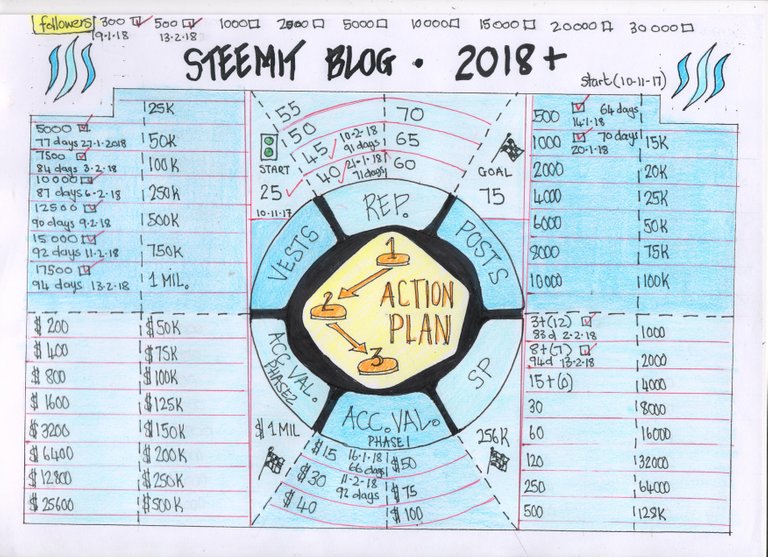 followers 300 500 1000 2500 5000 10000 15000 20000 30000
9·1·18 13·2·18
STEEMIT BLOG · 2018+
start (10-11-17)
5000
77 days 27·1·2018
7500
84 days 3·2·18
10000
87 days 6·2·18
12500
90 days 9·2·18
15.000
92 days 11·2·18
17500
94 days 13·2·18
25K
50K
100K
250K
500K
750K
1 MIL.
55
50
45 10·2·18
91 days
40 21·1·18
71 days
START
25
10·11·17
70
65
60
GOAL
75
500 64 days
14·1·18
1000 70 days
20·1·18
2000
4000
6000
8000
10000
15K
20K
25K
50K
75K
100K
REP.
VESTS
POSTS
1
2
3
ACTION
PLAN
ACC. VAL.
PHASE2
SP
ACC. VAL.
PHASE 1
$ 200
$ 400
$ 800
$ 1600
$ 3200
$ 6400
$ 12800
$ 25600
$50K
$75K
$100K
$125K
$150K
$200K
$250K
$500K
$1 MIL
$15 16·1·18
66 days
$30 11·2·18
92 days
$40
$50
$75
$100
256K
3+(12)
83d 2·2·18
8+(7)
94d 13·2·18
15+(0)
30
60
120
250
500
1000
2000
4000
8000
16000
32000
64000
128K